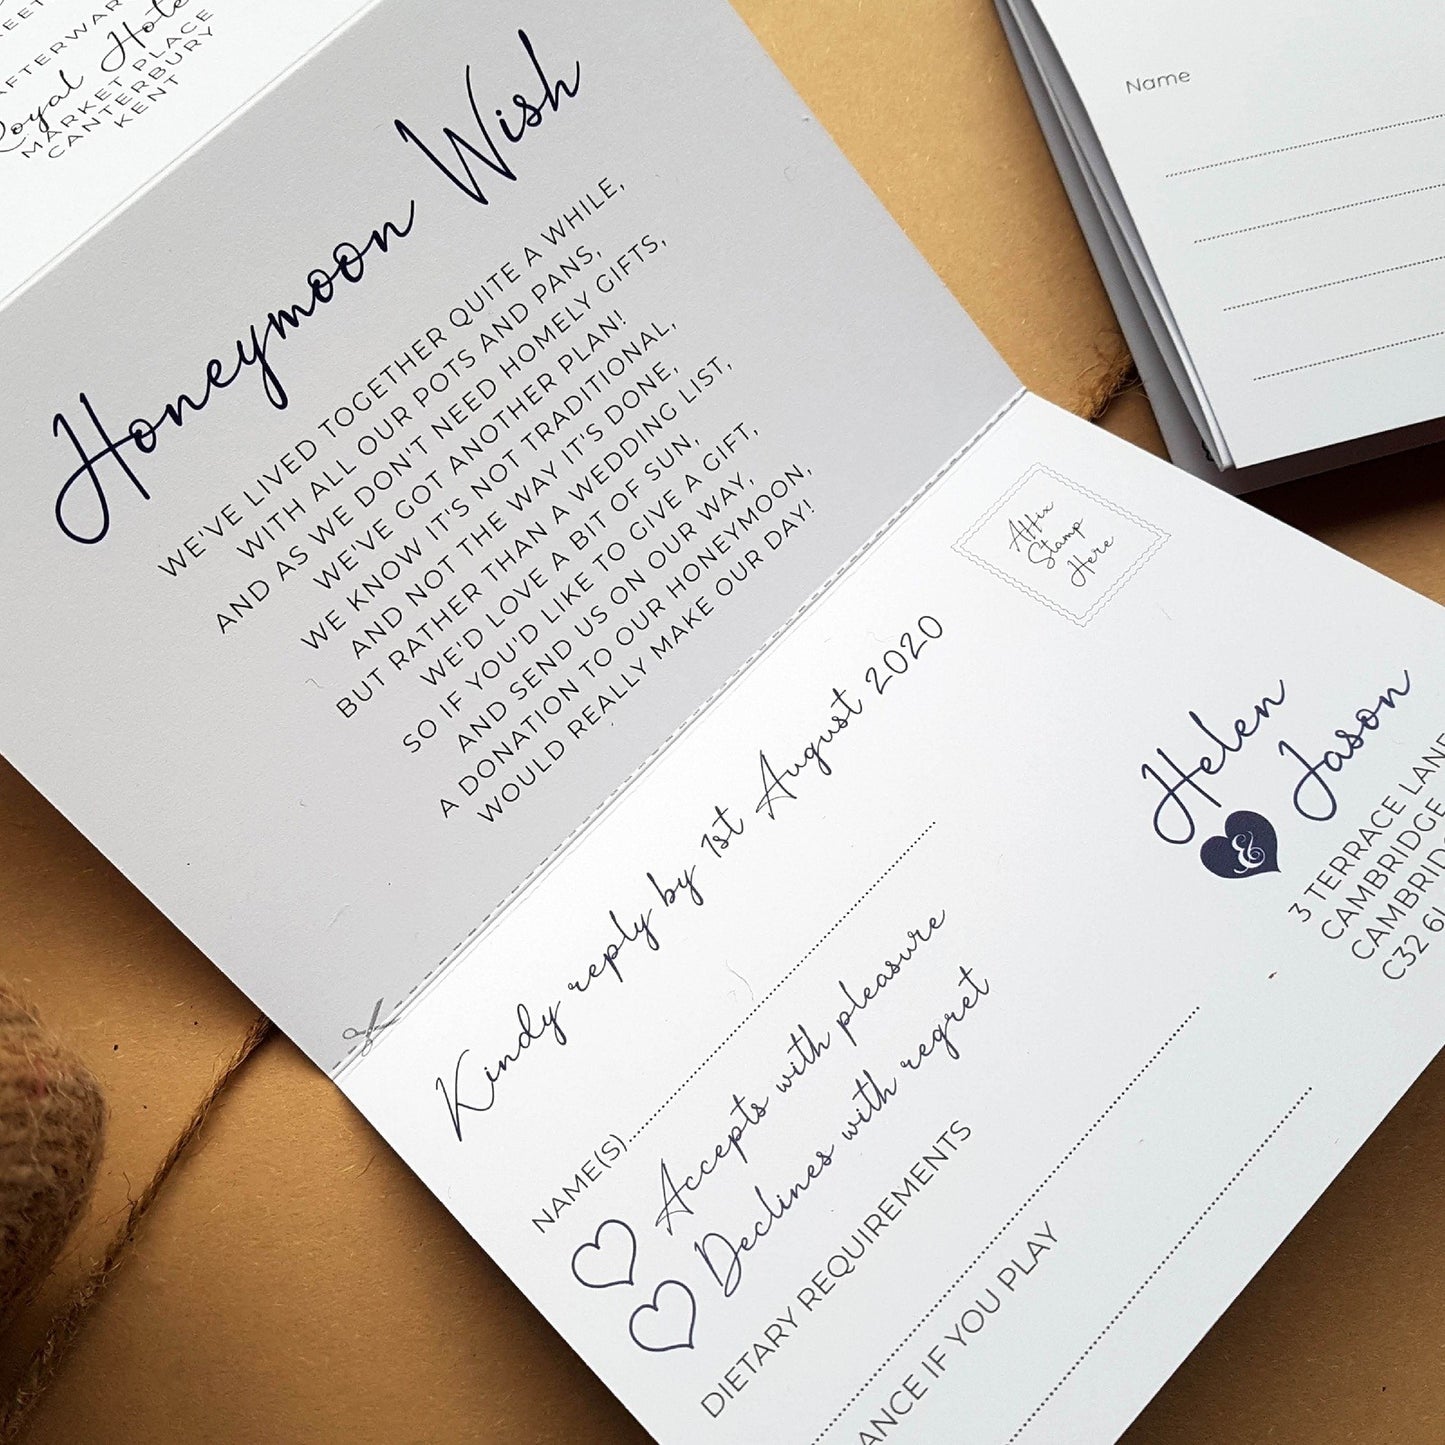 Royal Hote
MARKET PLACE
CANTERBURY
KENT
Honeymoon Wish
WE'VE LIVED TOGETHER QUITE A WHILE,
WITH ALL OUR POTS AND PANS,
AND AS WE DON'T NEED HOMELY GIFTS,
WE'VE GOT ANOTHER PLAN!
WE KNOW IT'S NOT TRADITIONAL,
AND NOT THE WAY IT'S DONE,
BUT RATHER THAN A WEDDING LIST,
WE'D LOVE A BIT OF SUN,
SO IF YOU'D LIKE TO GIVE A GIFT,
AND SEND US ON OUR WAY,
A DONATION TO OUR HONEYMOON,
WOULD REALLY MAKE OUR DAY!
Name
Affix
Stamp
Here
Kindy reply by 1st August 2020
NAME(S)
Accepts with pleasure
Declines with regret
DIETARY REQUIREMENTS
ANCE IF YOU PLAY
Helen
& Jason
3 TERRACE LANE
CAMBRIDGE
CAMBRIDG
C32 6L